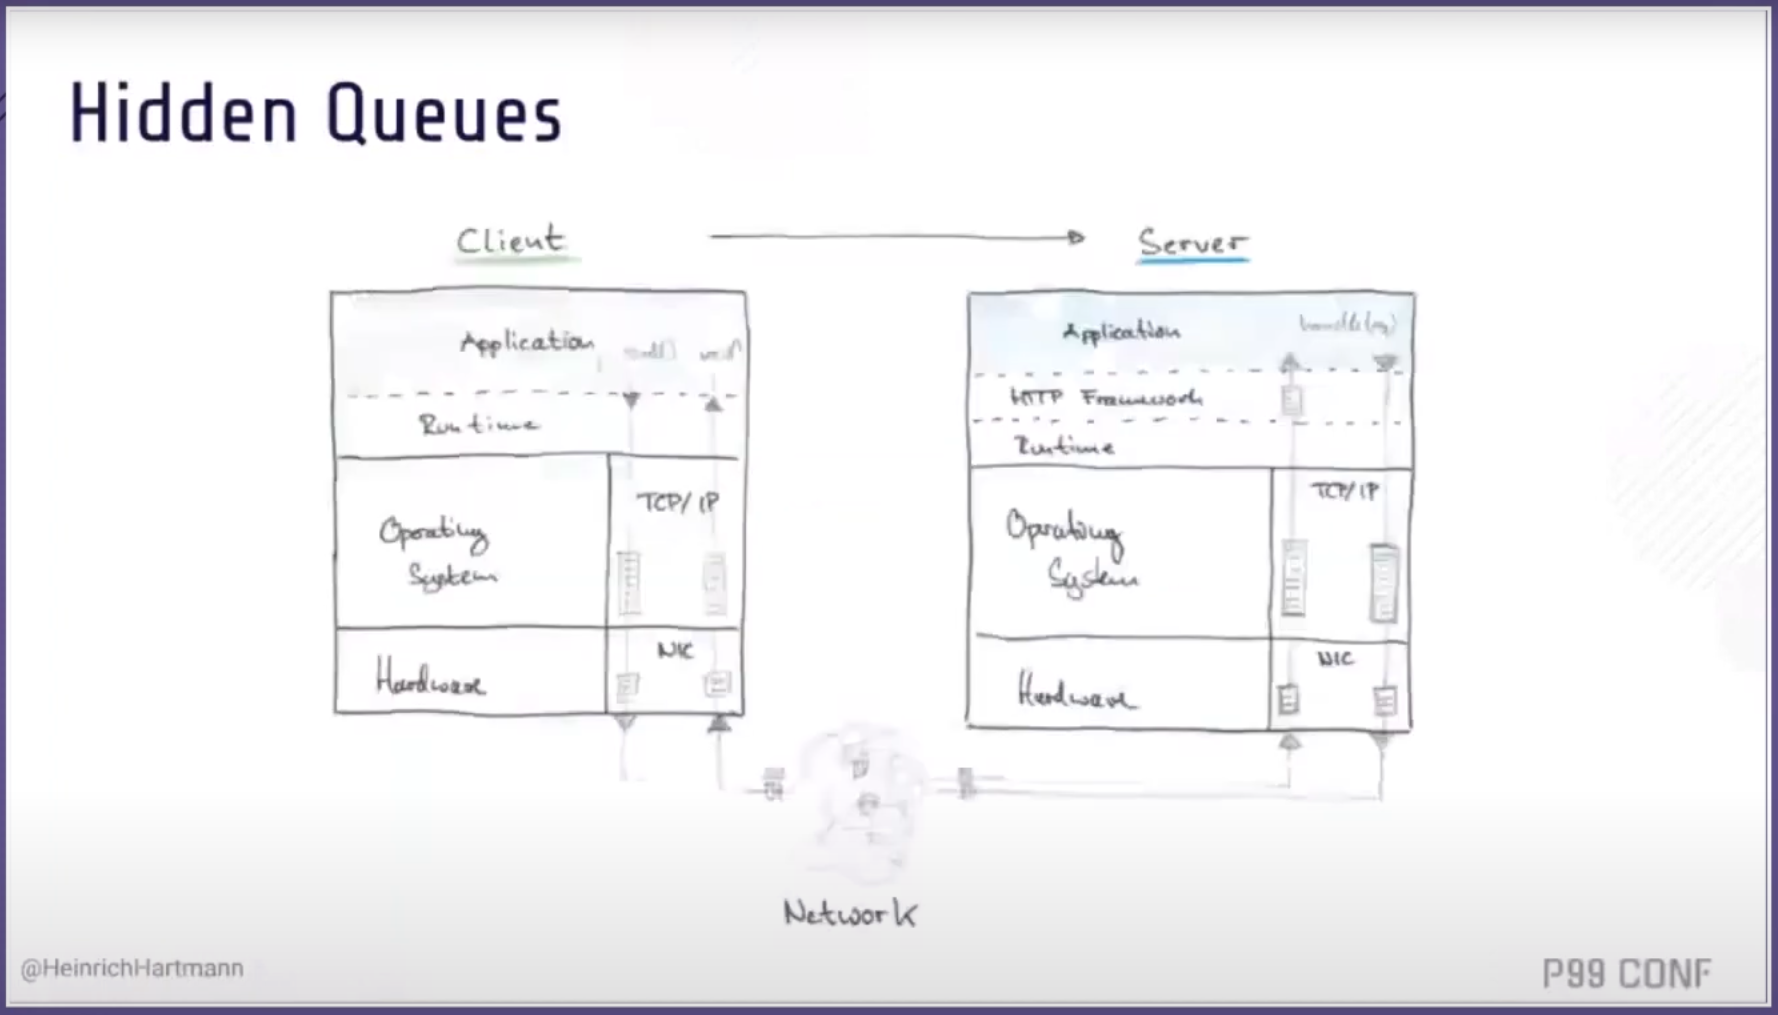 Hidden Queues
Client
Server
Application
Runtime
Operating
System
TCP/IP
Hardware
NIC
Application
HTTP Framework
Runtime
Operating
System
TCP/IP
Hardware
NIC
Network
@HeinrichHartmann
P99 CONF